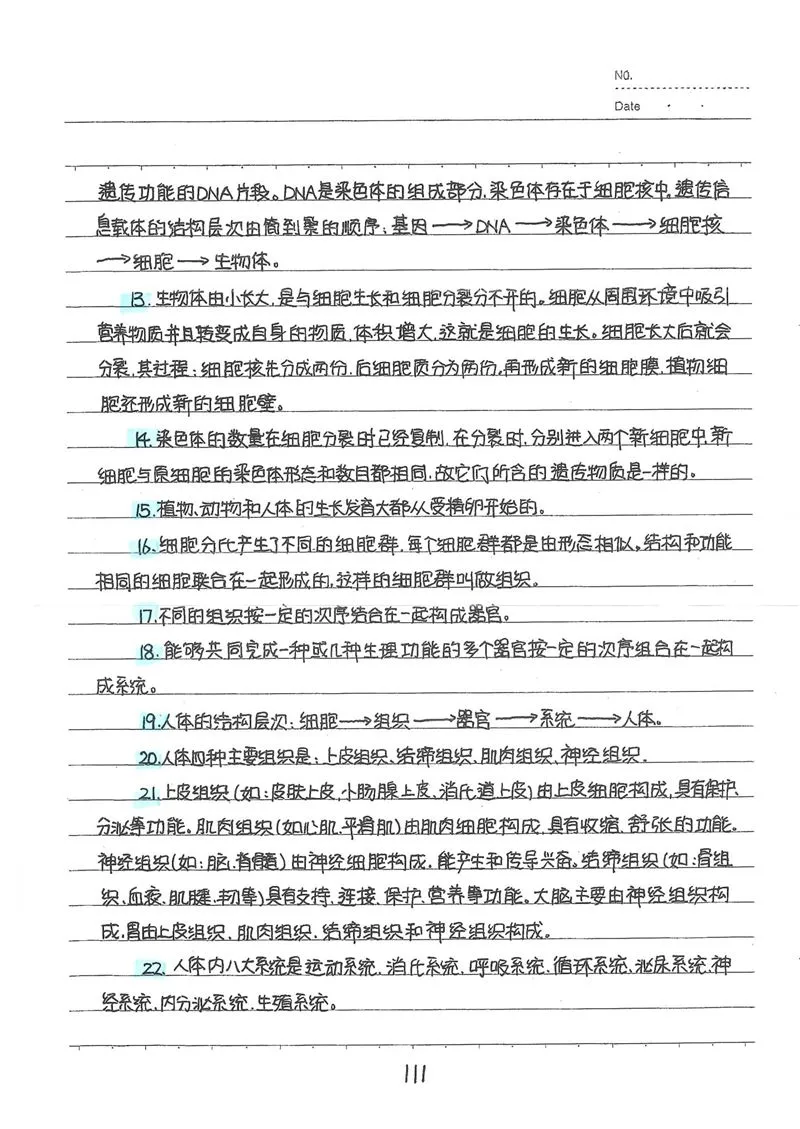 No.
Date
遗传功能的DNA片段。DNA是染色体的组成部分,染色体存在于细胞核中,遗传信
息载体的结构层次由简到繁的顺序:基因→DNA→染色体→细胞核
→细胞→生物体。
13.生物体由小长大,是与细胞生长和细胞分裂分不开的。细胞从周围环境中吸引
营养物质并且转变成自身的物质,体积增大,这就是细胞的生长。细胞长大后就会
分裂,其过程:细胞核先分成两份,后细胞质分为两份,再形成新的细胞膜,植物细
胞还形成新的细胞壁。
14.染色体的数量在细胞分裂时已经复制,在分裂时,分别进入两个新细胞中,新
细胞与原细胞的染色体形态和数目都相同,故它们所含的遗传物质是一样的。
15.植物、动物和人体的生长发育大都从受精卵开始的。
16.细胞分化产生了不同的细胞群,每个细胞群都是由形态相似,结构和功能
相同的细胞联合在一起形成的,这样的细胞群叫做组织。
17.不同的组织按一定的次序结合在一起构成器官。
18.能够共同完成一种或几种生理功能的多个器官按一定的次序组合在一起构
成系统。
19.人体的结构层次:细胞→组织→器官→系统→人体。
20.人体四种主要组织是:上皮组织、结缔组织、肌肉组织、神经组织.
21.上皮组织(如:皮肤上皮、小肠腺上皮、消化道上皮)由上皮细胞构成,具有保护、
分泌等功能。肌肉组织(如心肌、平滑肌)由肌肉细胞构成,具有收缩、舒张的功能。
神经组织(如:脑、脊髓)由神经细胞构成,能产生和传导兴奋。结缔组织(如:骨组
织、血液、肌腱、韧带)具有支持、连接、保护、营养等功能。大脑主要由神经组织构
成,胃由上皮组织、肌肉组织、结缔组织和神经组织构成。
22.人体内八大系统是运动系统、消化系统、呼吸系统、循环系统、泌尿系统、神
经系统、内分泌系统、生殖系统。
111